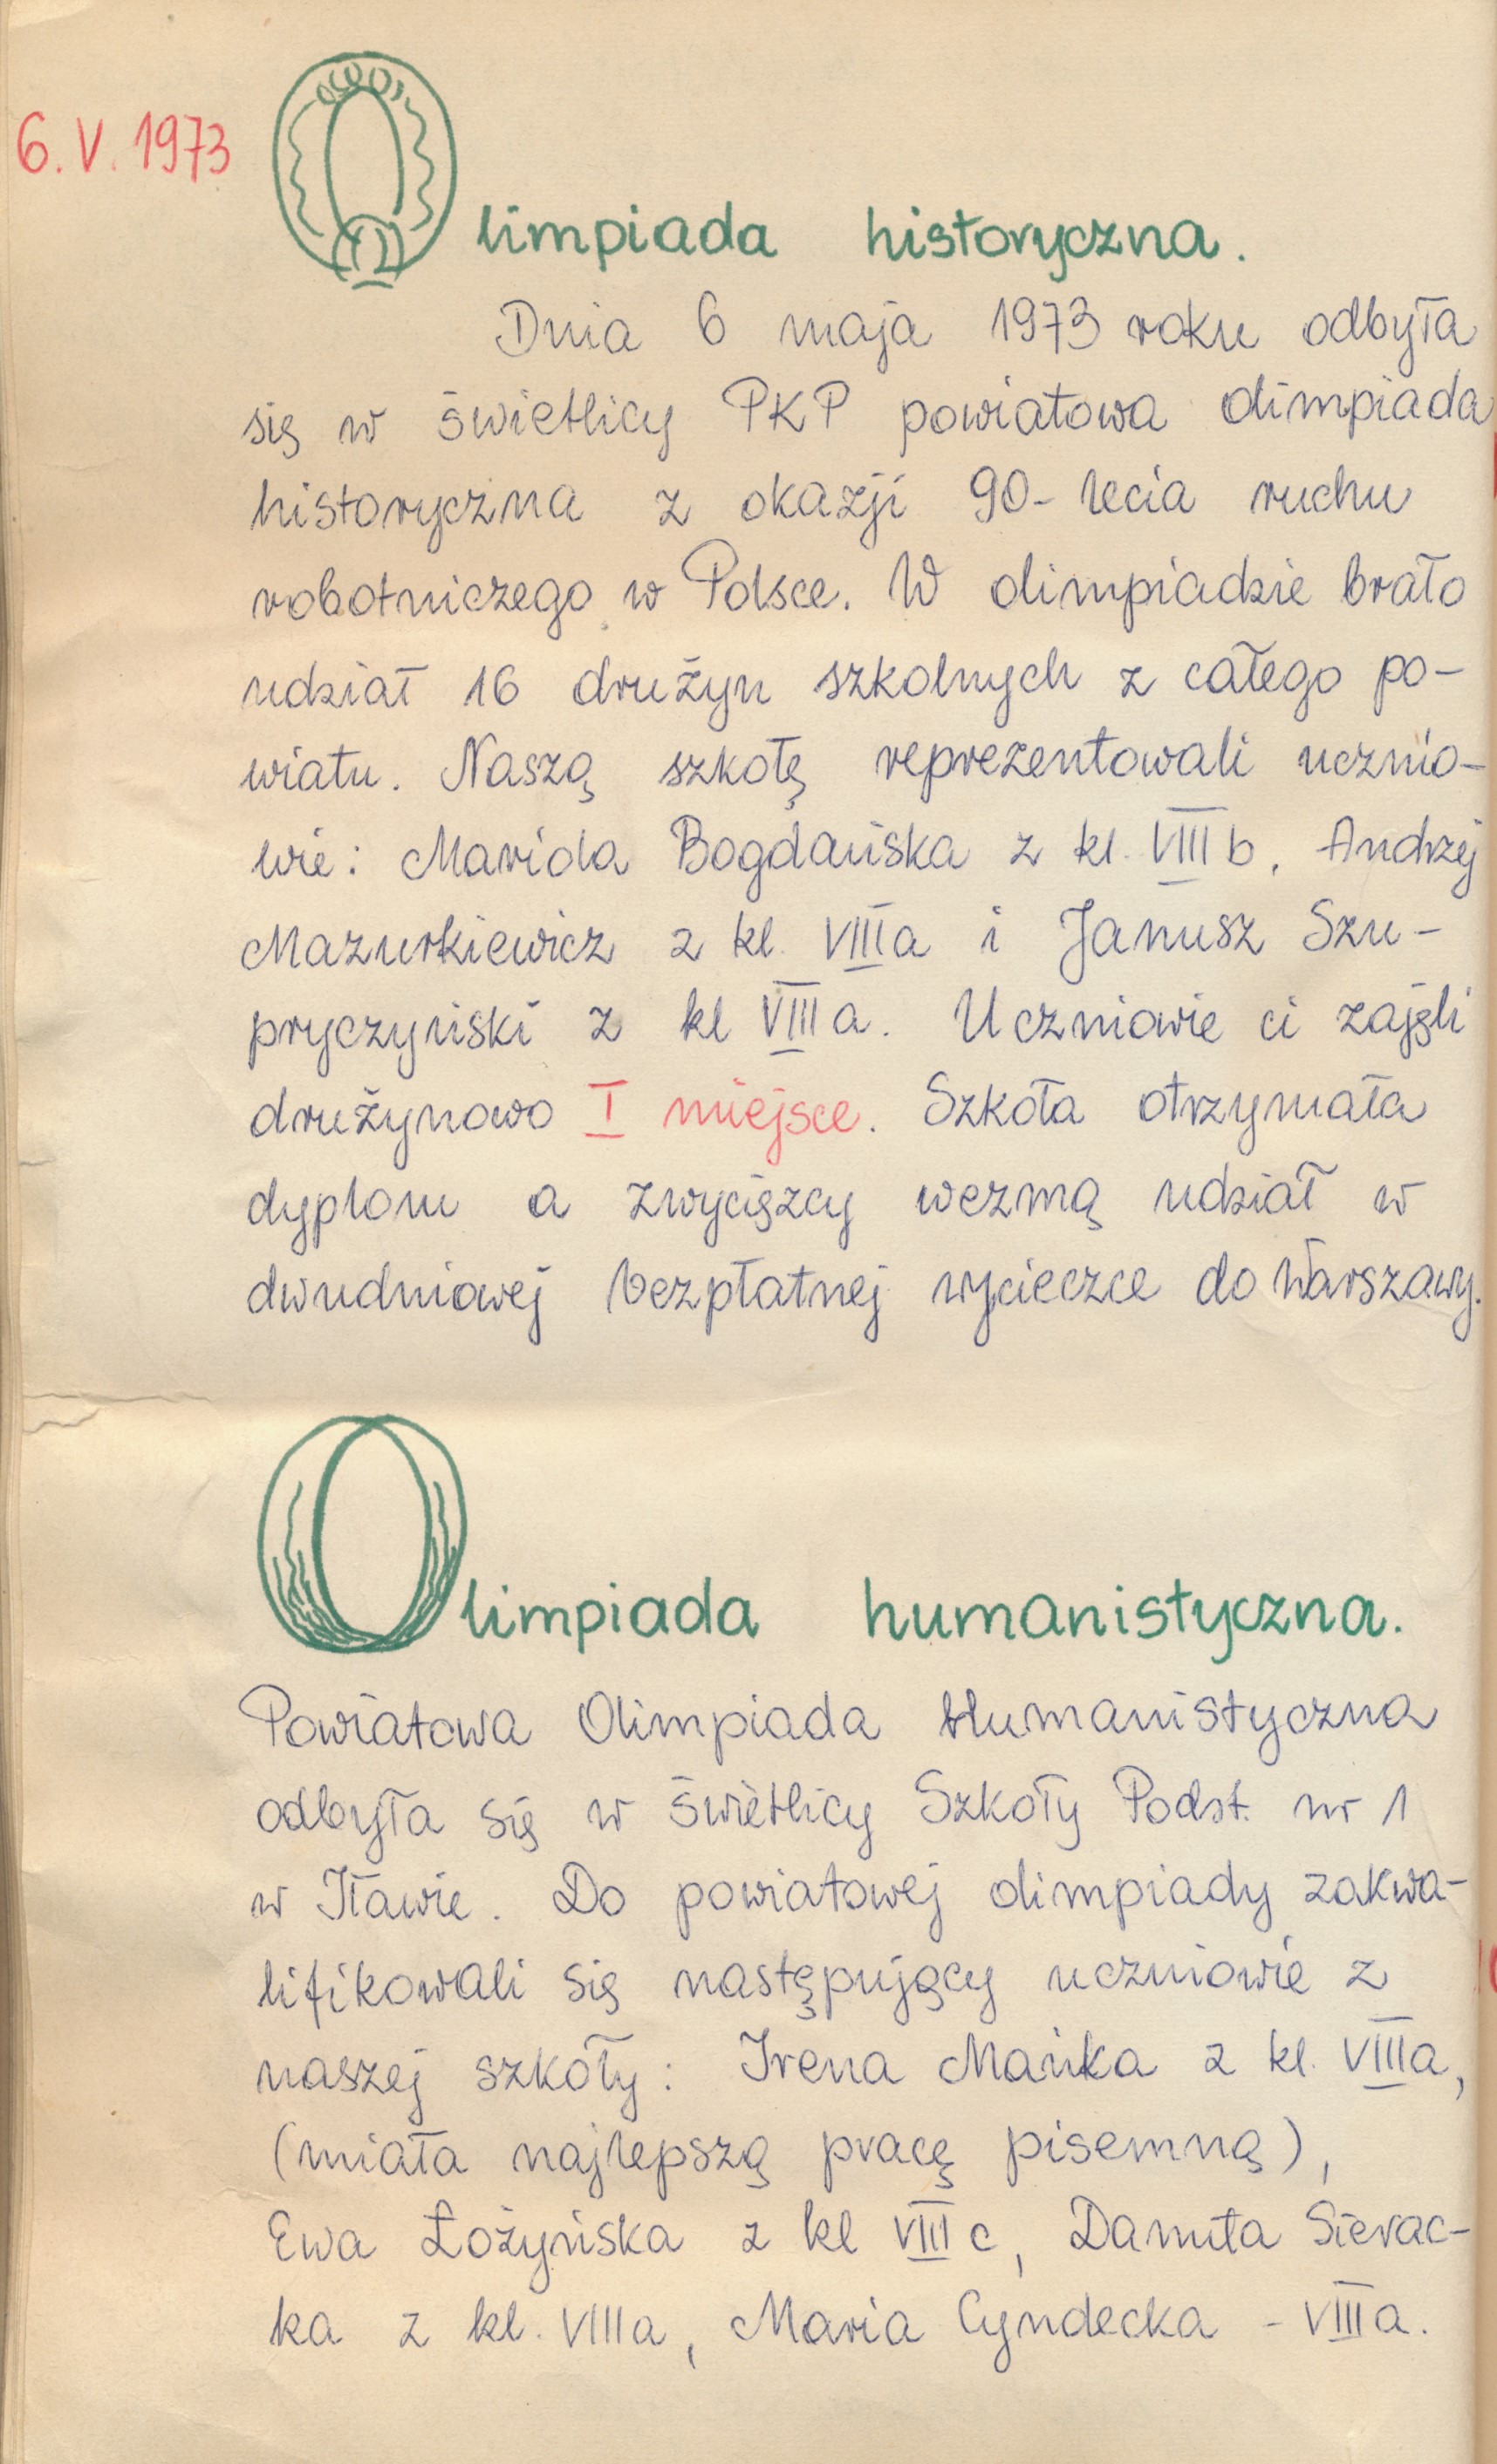 6.V.1973
Olimpiada historyczna.
Dnia 6 maja 1973 roku odbyła
się w świetlicy PKP powiatowa olimpiada
historyczna z okazji 90-lecia ruchu
robotniczego w Polsce. W olimpiadzie brało
udział 16 drużyn szkolnych z całego po-
wiatu. Naszą szkołę reprezentowali ucznio-
wie: Mariola Bogdańska z kl. VIII b, Andrzej
Mazurkiewicz z kl. VIIIa i Janusz Szu-
pryczyński z kl VIII a. Uczniowie ci zajęli
drużynowo I miejsce. Szkoła otrzymała
dyplom a zwycięzcy wezmą udział w
dwudniowej bezpłatnej wycieczce do Warszawy.
Olimpiada humanistyczna.
Powiatowa Olimpiada Humanistyczna
odbyła się w świetlicy Szkoły Podst. nr 1
w Iławie. Do powiatowej olimpiady zakwa-
lifikowali się następujący uczniowie z
naszej szkoły: Irena Mańka z kl. VIIIa,
(miała najlepszą pracę pisemną),
Ewa Łożyńska z kl VIII c, Danuta Sierac-
ka z kl. VIIIa, Maria Cyndecka - VIIIa.